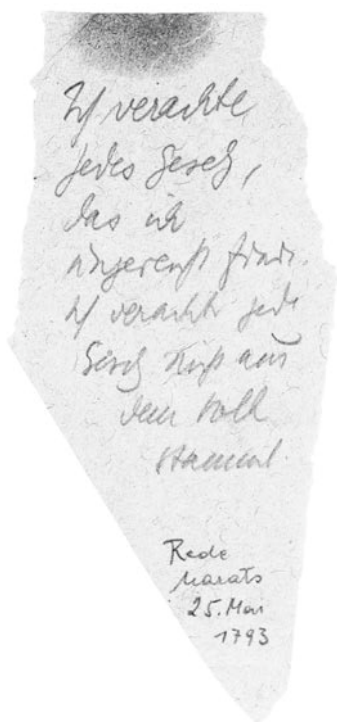 Ich verachte
jedes Gesetz,
das ich
ungerecht finde.
Ich verachte jedes
Gesetz
dem Volk
stammt.
Rede
Marats
25. Mai
1793